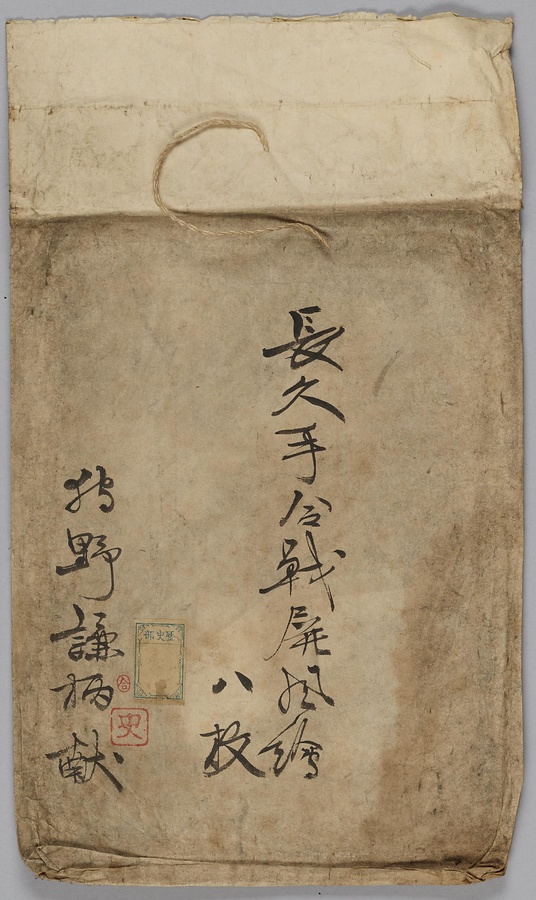 長久手合戰屏風繪
八枚
狩野謙柄献
歷史部
史